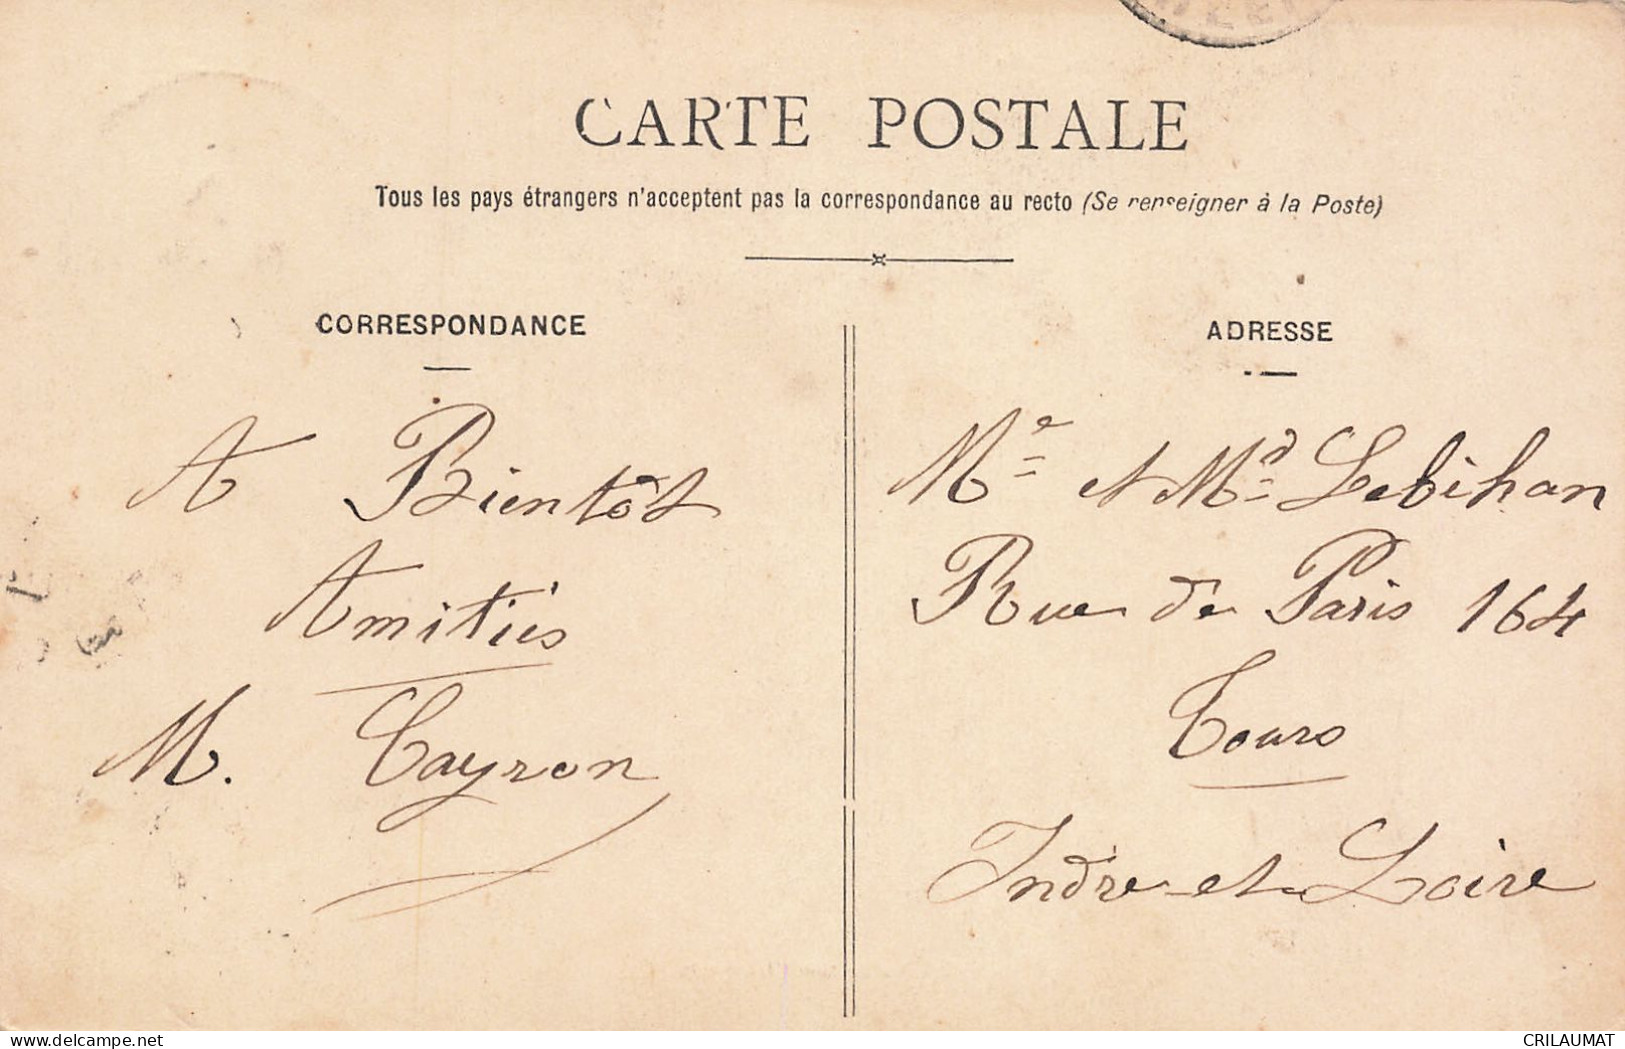 CARTE POSTALE
Tous les pays étrangers n'acceptent pas la correspondance au recto (Se renseigner à la Poste)
CORRESPONDANCE
A Bientôt
Amitiés
M. Cayron
ADRESSE
Me et Md Lebihan
Rue de Paris 164
Tours
Indre et Loire
delcampe.net
CRILAUMAT